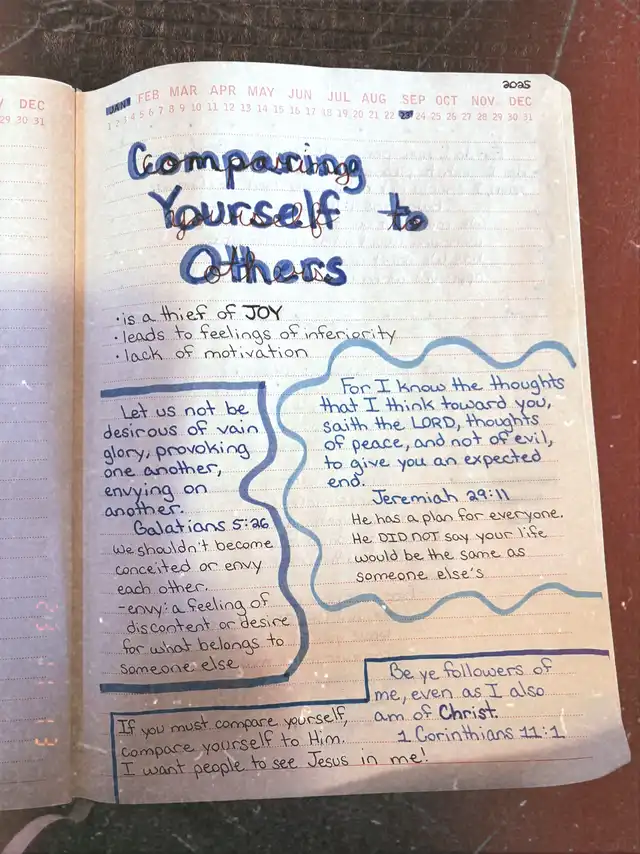 2025
JAN FEB MAR APR MAY JUN JUL AUG SEP OCT NOV DEC
1 2 3 4 5 6 7 8 9 10 11 12 13 14 15 16 17 18 19 20 21 22 23 24 25 26 27 28 29 30 31
DEC
29 30 31
Comparing
Yourself to
Others
· is a thief of JOY
· leads to feelings of inferiority
· lack of motivation
Let us not be
desirous of vain
glory, provoking
one another,
envying on
another.
Galatians 5:26
We shouldn't become
conceited or envy
each other.
-envy: a feeling of
discontent or desire
for what belongs to
someone else
For I know the thoughts
that I think toward you,
saith the LORD, thoughts
of peace, and not of evil,
to give you an expected
end.
Jeremiah 29:11
He has a plan for everyone.
He DID NOT say your life
would be the same as
someone else's
Be ye followers of
me, even as I also
am of Christ.
1 Corinthians 11:1
If you must compare yourself,
compare yourself to Him.
I want people to see Jesus in me!